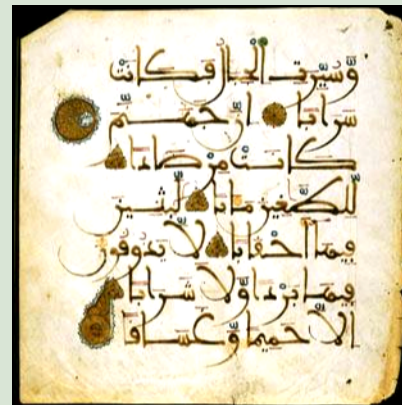 وَسُيِّرَتِ الْجِبَالُ فَكَانَتْ
سَرَابًا إِنَّ جَهَنَّمَ
كَانَتْ مِرْصَادًا
لِّلطَّٰغِينَ مَـَٔابًا لَّٰبِثِينَ
فِيهَا أَحْقَابًا لَّا يَذُوقُونَ
فِيهَا بَرْدًا وَلَا شَرَابًا
إِلَّا حَمِيمًا وَغَسَاقًا